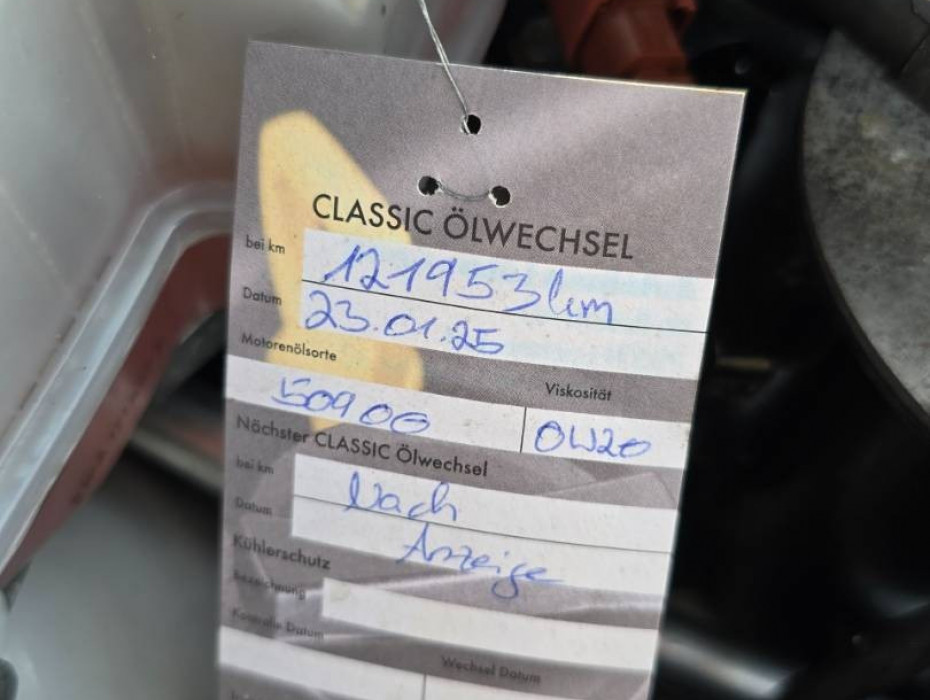 CLASSIC ÖLWECHSEL
bei km 121953 km
Datum 23.01.25
Motorenölsorte Viskosität
50900 0W20
Nächster CLASSIC Ölwechsel
bei km Nach
Datum Anzeige
Kühlerschutz
Bezeichnung
Kontrolle Datum
Wechsel Datum